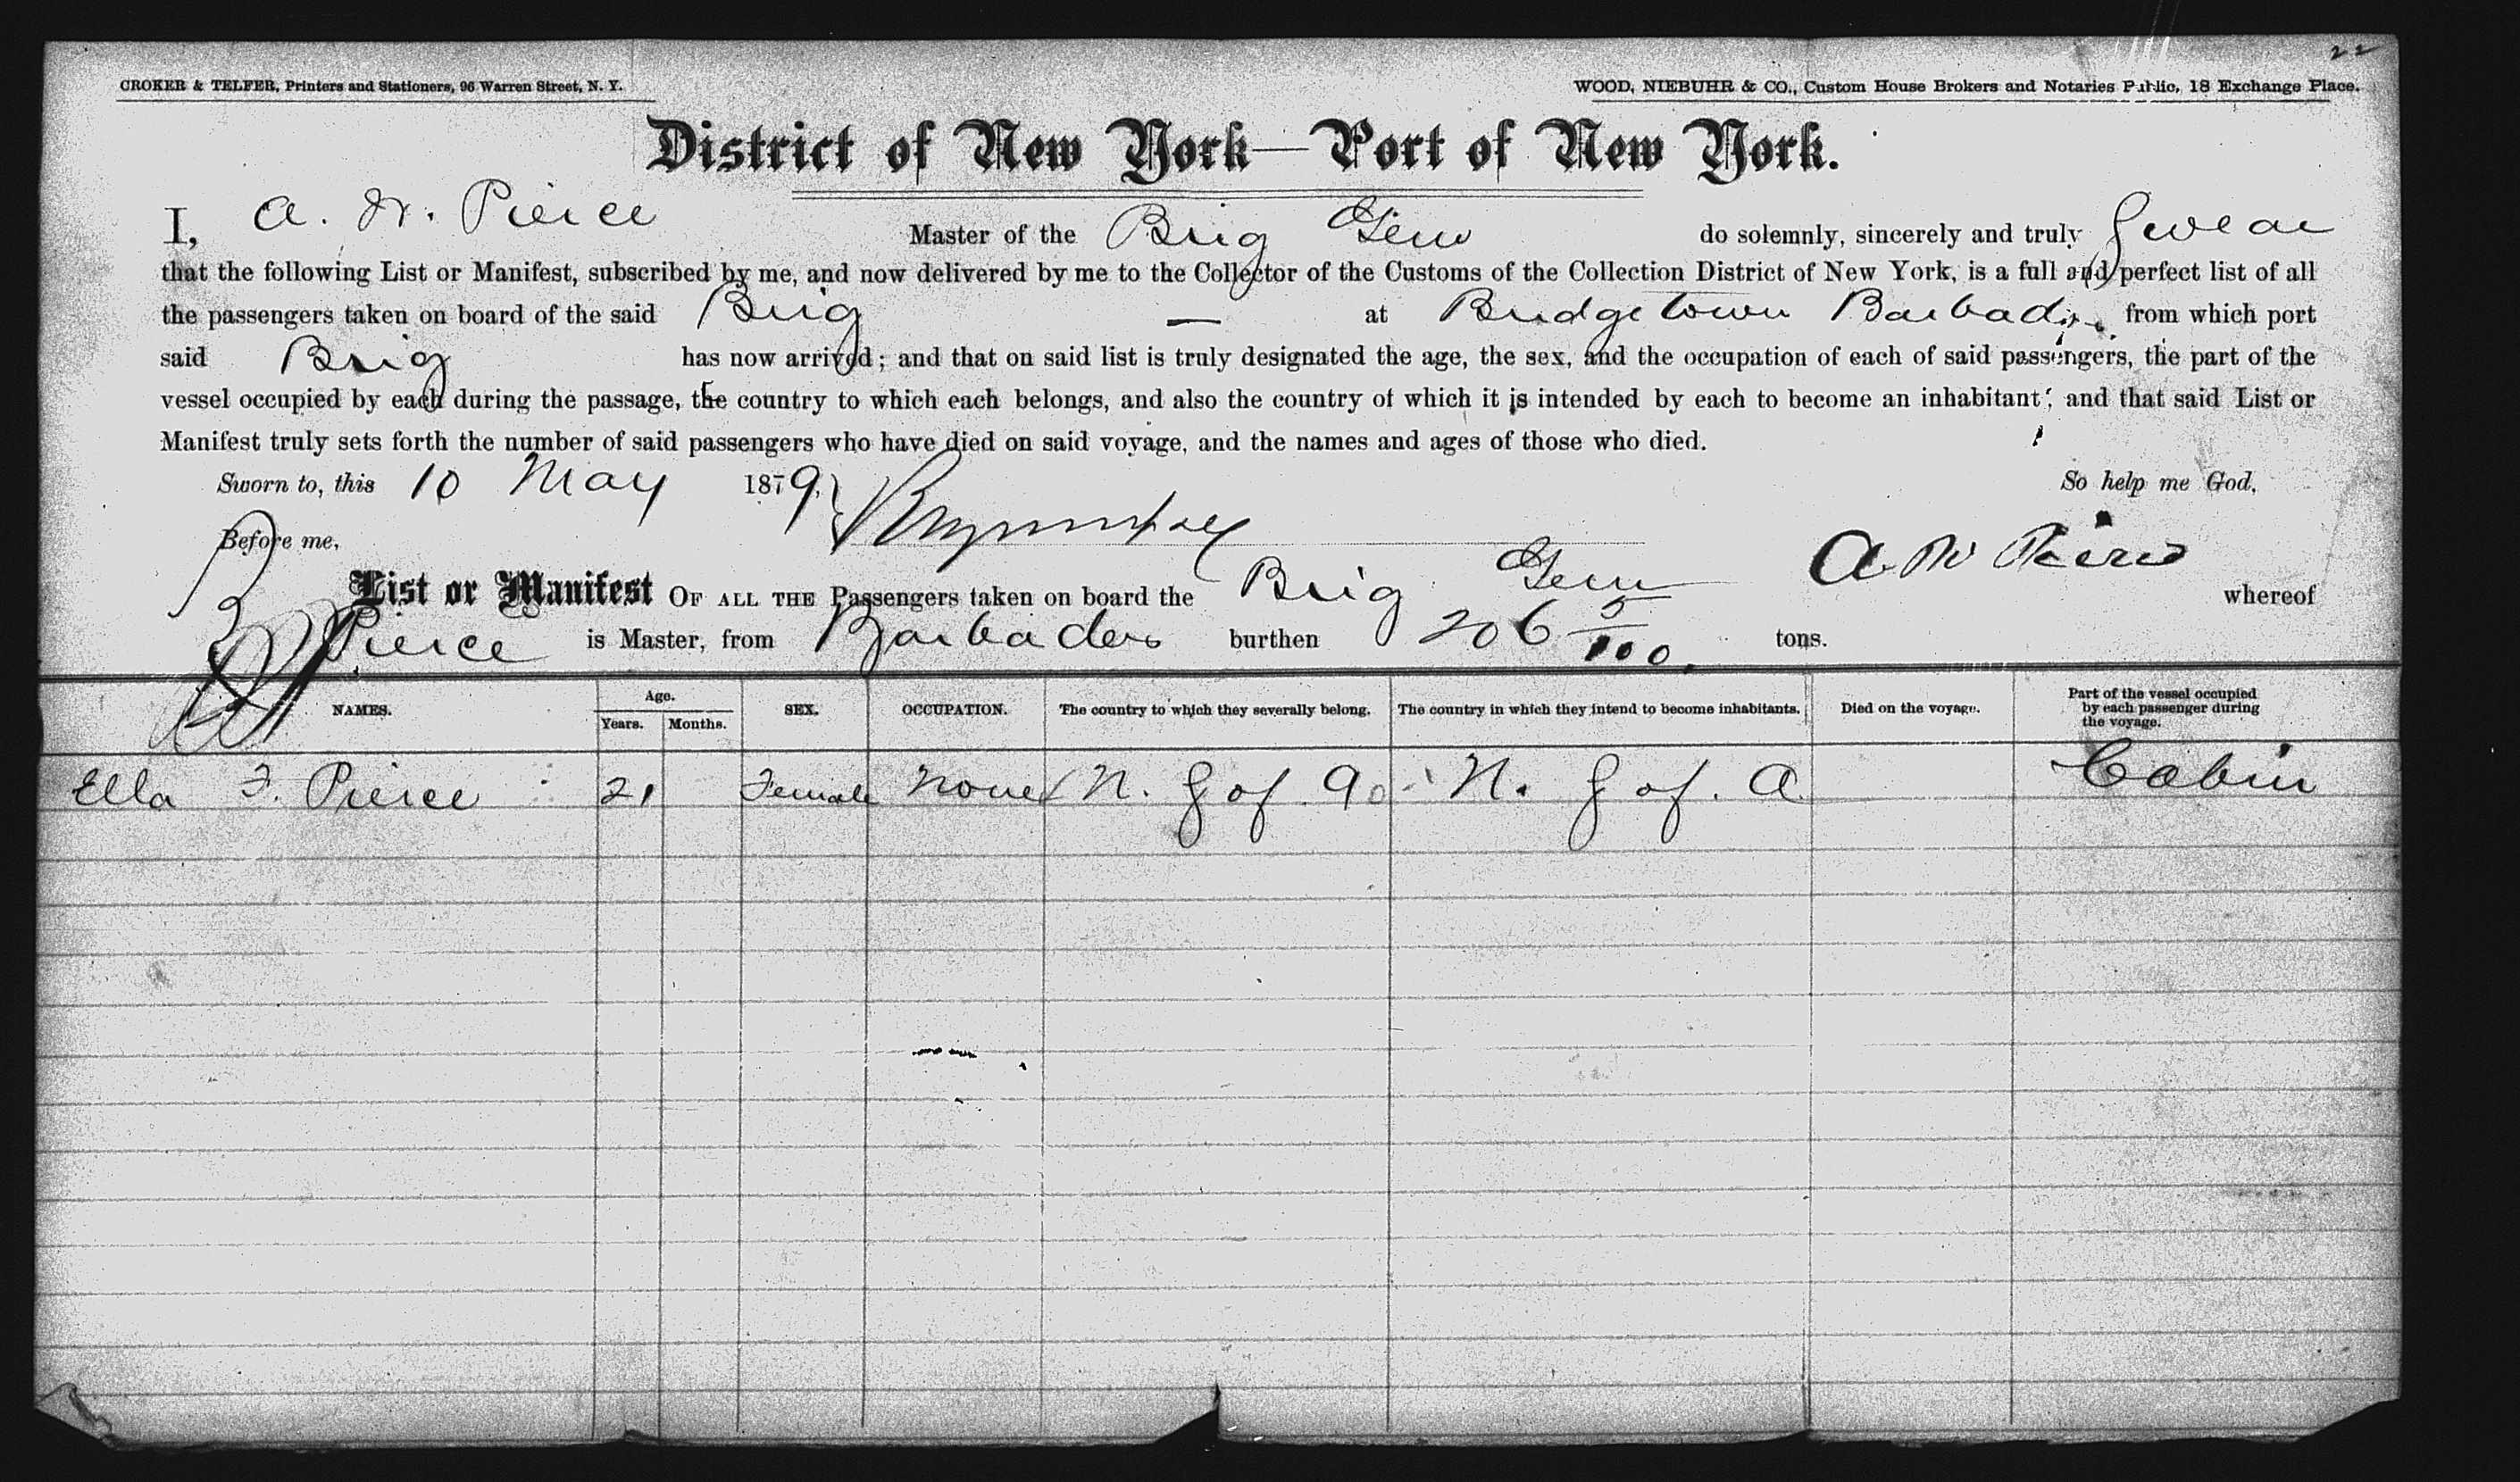 22
CROKER & TELFER, Printers and Stationers, 96 Warren Street, N. Y. WOOD, NIEBUHR & CO., Custom House Brokers and Notaries Public, 18 Exchange Place.
District of New York—Port of New York.
I, A. W. Pierce Master of the Brig Gem do solemnly, sincerely and truly Swear
that the following List or Manifest, subscribed by me, and now delivered by me to the Collector of the Customs of the Collection District of New York, is a full and perfect list of all
the passengers taken on board of the said Brig — at Bridgetown Barbados from which port
said Brig has now arrived; and that on said list is truly designated the age, the sex, and the occupation of each of said passengers, the part of the
vessel occupied by each during the passage, the country to which each belongs, and also the country of which it is intended by each to become an inhabitant; and that said List or
Manifest truly sets forth the number of said passengers who have died on said voyage, and the names and ages of those who died.
Sworn to, this 10 May 1879, So help me God,
Before me, A. W. Pierce
List or Manifest OF ALL THE Passengers taken on board the Brig Gem whereof
Pierce is Master, from Barbados burthen 206 5/100 tons.
NAMES. Age. Years. Months. SEX. OCCUPATION. The country to which they severally belong. The country in which they intend to become inhabitants. Died on the voyage. Part of the vessel occupied by each passenger during the voyage.
Ella F. Pierce 21 Female None N. S of. A N. S of. A Cabin